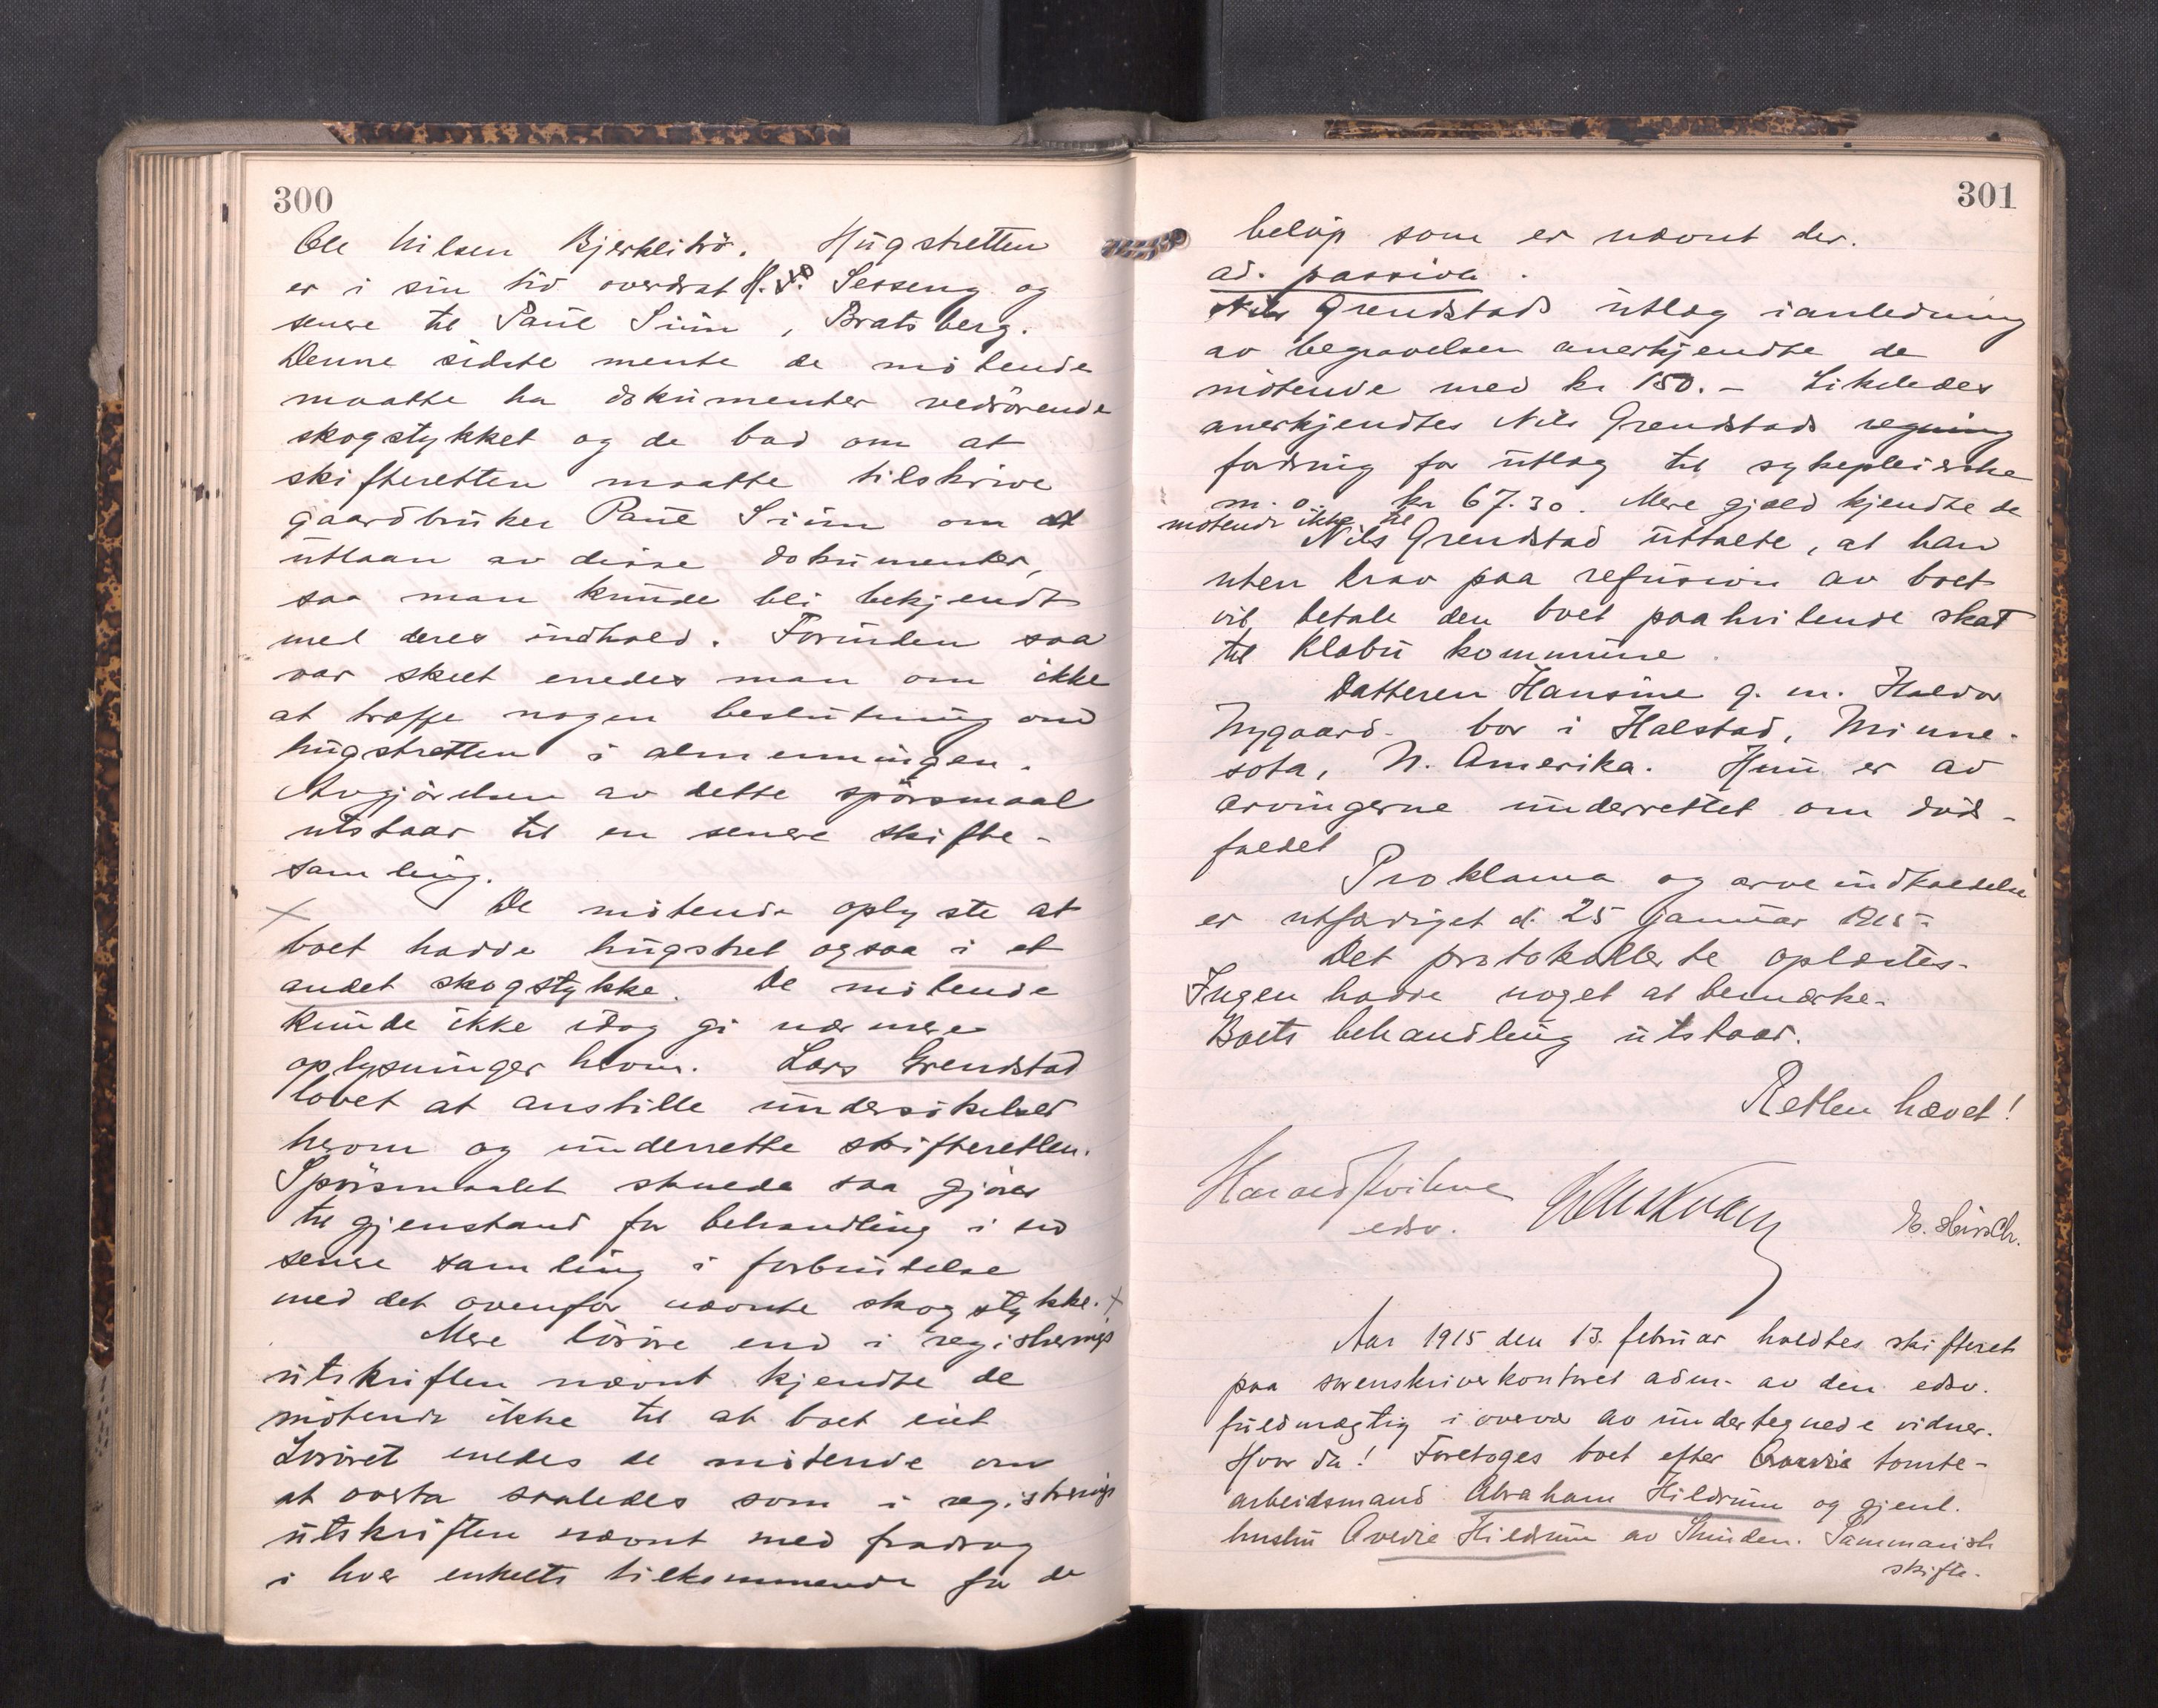 300
Ole Nilsen Bjerklitrö. Hugstretten
er i sin tid overdrat H. J. Sesseng og
senere til Paul Siim, Bratsberg.
Denne sidste mente de mötende
maatte ha dokumenter vedrörende
skogstykket og de bad om at
skifteretten maatte tilskrive
gaardbruker Paul Siim om at
utlaan av disse dokumenter,
saa man kunde bli bekjendt
med deres indhold. Forinden saa
var skeet enedes man om ikke
at træffe nogen beslutning om
hugstretten i almenningen.
Avgjörelsen av dette spörsmaal
utstaar til en senere skifte-
samling.
× De mötende oplyste at
boet hadde hugstret ogsaa i et
andet skogstykke. De mötende
kunde ikke idag gi nærmere
oplysninger herom. Lars Grendstad
lovet at anstille undersökelser
herom og underrette skifteretten.
Spörsmaalet skulde saa gjöres
til gjenstand for behandling i en
senere samling i forbindelse
med det ovenfor nævnte skogstykke. ×
Mere lösöre end i registrerings
utskriften nævnt kjendte de
mötende ikke til at boet eiet
Lösöret enedes de mötende om
at overta saaledes som i registrerings
utskriften nævnt med fradrag
i hver enkelts tilkommende for de
301
belöp som er nævnt der.
ad. passiva.
Nils Grendstads utlæg ianledning
av begravelsen anerkjendte de
mötende med kr 150.- Likeledes
anerkjendtes Nils Grendstads regning
fordring for utlæg til sykepleierske
m. v. kr 67.30. Mere gjæld kjendte de
mötende ikke til
Nils Grendstad uttalte, at han
uten krav paa refusion av boet
vil betale den boet paahvilende skat
til Klæbu kommune.
Datteren Hansine g. m. Haldor
Nygaard bor i Halstad, Minne-
sota, N. Amerika. Hun er av
arvingerne underrettet om döds-
faldet
Proklama og arveindkaldelse
er utfærdiget d. 25 januar 1915-
Det protokollerte oplæstes.
Ingen hadde noget at bemærke.
Boets behandling utstaar.
Retten hævet!
Harald Kvihne
edsv. E. Hirsch.
Aar 1915 den 13. februar holdtes skifteret
paa sorenskriverkontoret adm. av den edsv.
fuldmægtig i overvær av undertegnede vidner.
Hvor da! Foretoges boet efter tomte-
arbeidsmand Abraham Hildrum og gjenl.
hustru Ovedie Hildrum av Strinden. Summarisk
skifte.